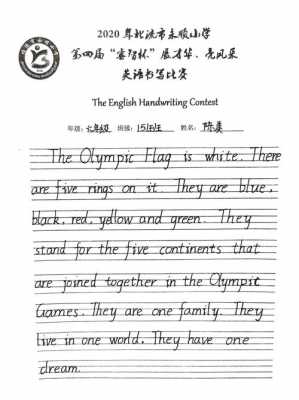 2020年北流市永顺小学
第四届“睿智杯”展才华、亮风采
英语书写比赛
The English Handwriting Contest
年级: 七年级 班级: 151班 姓名: 陈
The Olympic Flag is white. There
are five rings on it. They are blue,
black, red, yellow and green. They
stand for the five continents that
are joined together in the Olympic
Games. They are one family. They
live in one world. They have one
dream.